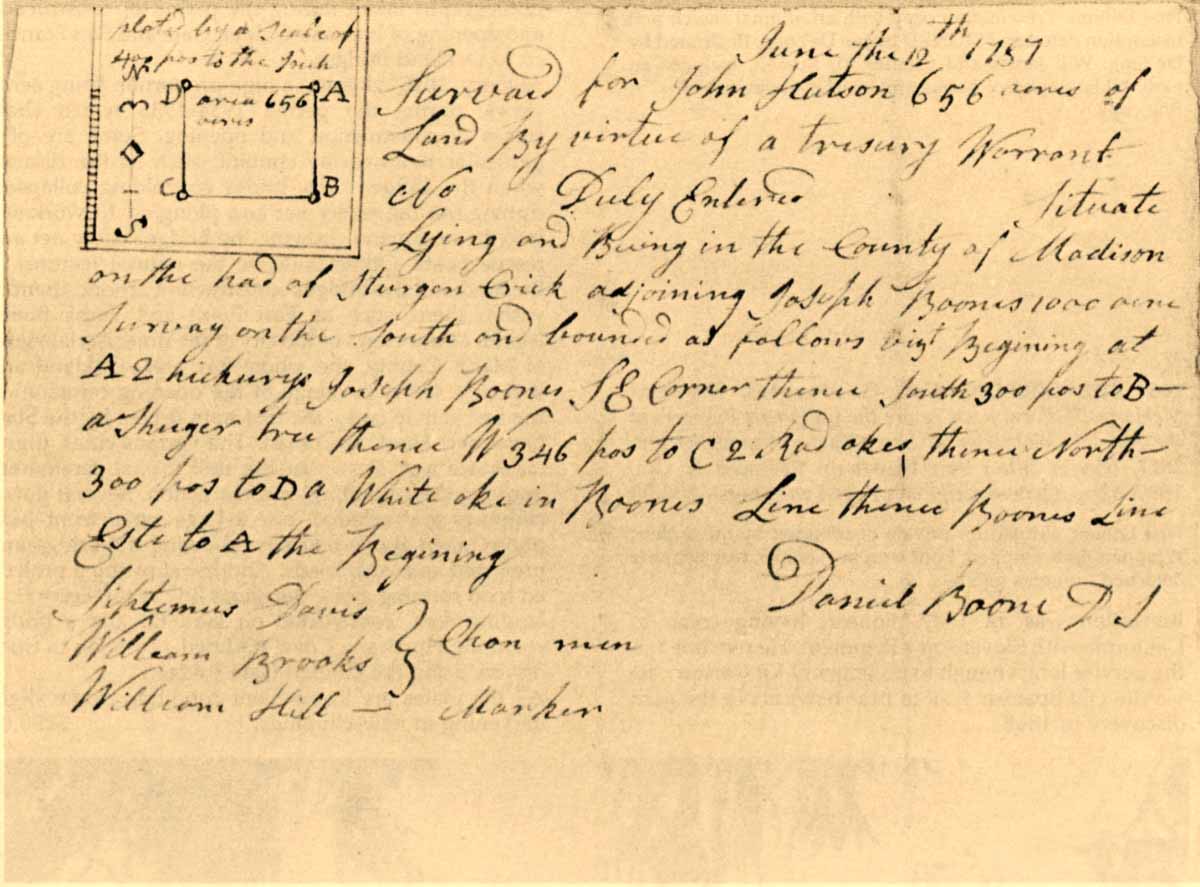 plotd by a Scale of
400 pos to the Inch
N
D
A
area 656
acres
3
C
B
S
June the 12th 1787
Survaid for John Hutson 656 acres of
Land By virtue of a tresury Warrant
No Duly Entered Situate
Lying and Being in the County of Madison
on the had of Sturgen Crick adjoining Joseph Boones 1000 acre
Survay on the South and bounded as follows vizt Begining at
A 2 hickurys Joseph Boones S E Corner thence South 300 pos to B —
a Shuger tree thence W 346 pos to C 2 Rad okes, thence North —
300 pos to D a White oke in Boones Line thence Boones Line
Este to A the Begining
Daniel Boone D S
Septemus Davis
William Brooks } Chan men
William Hill — Marker